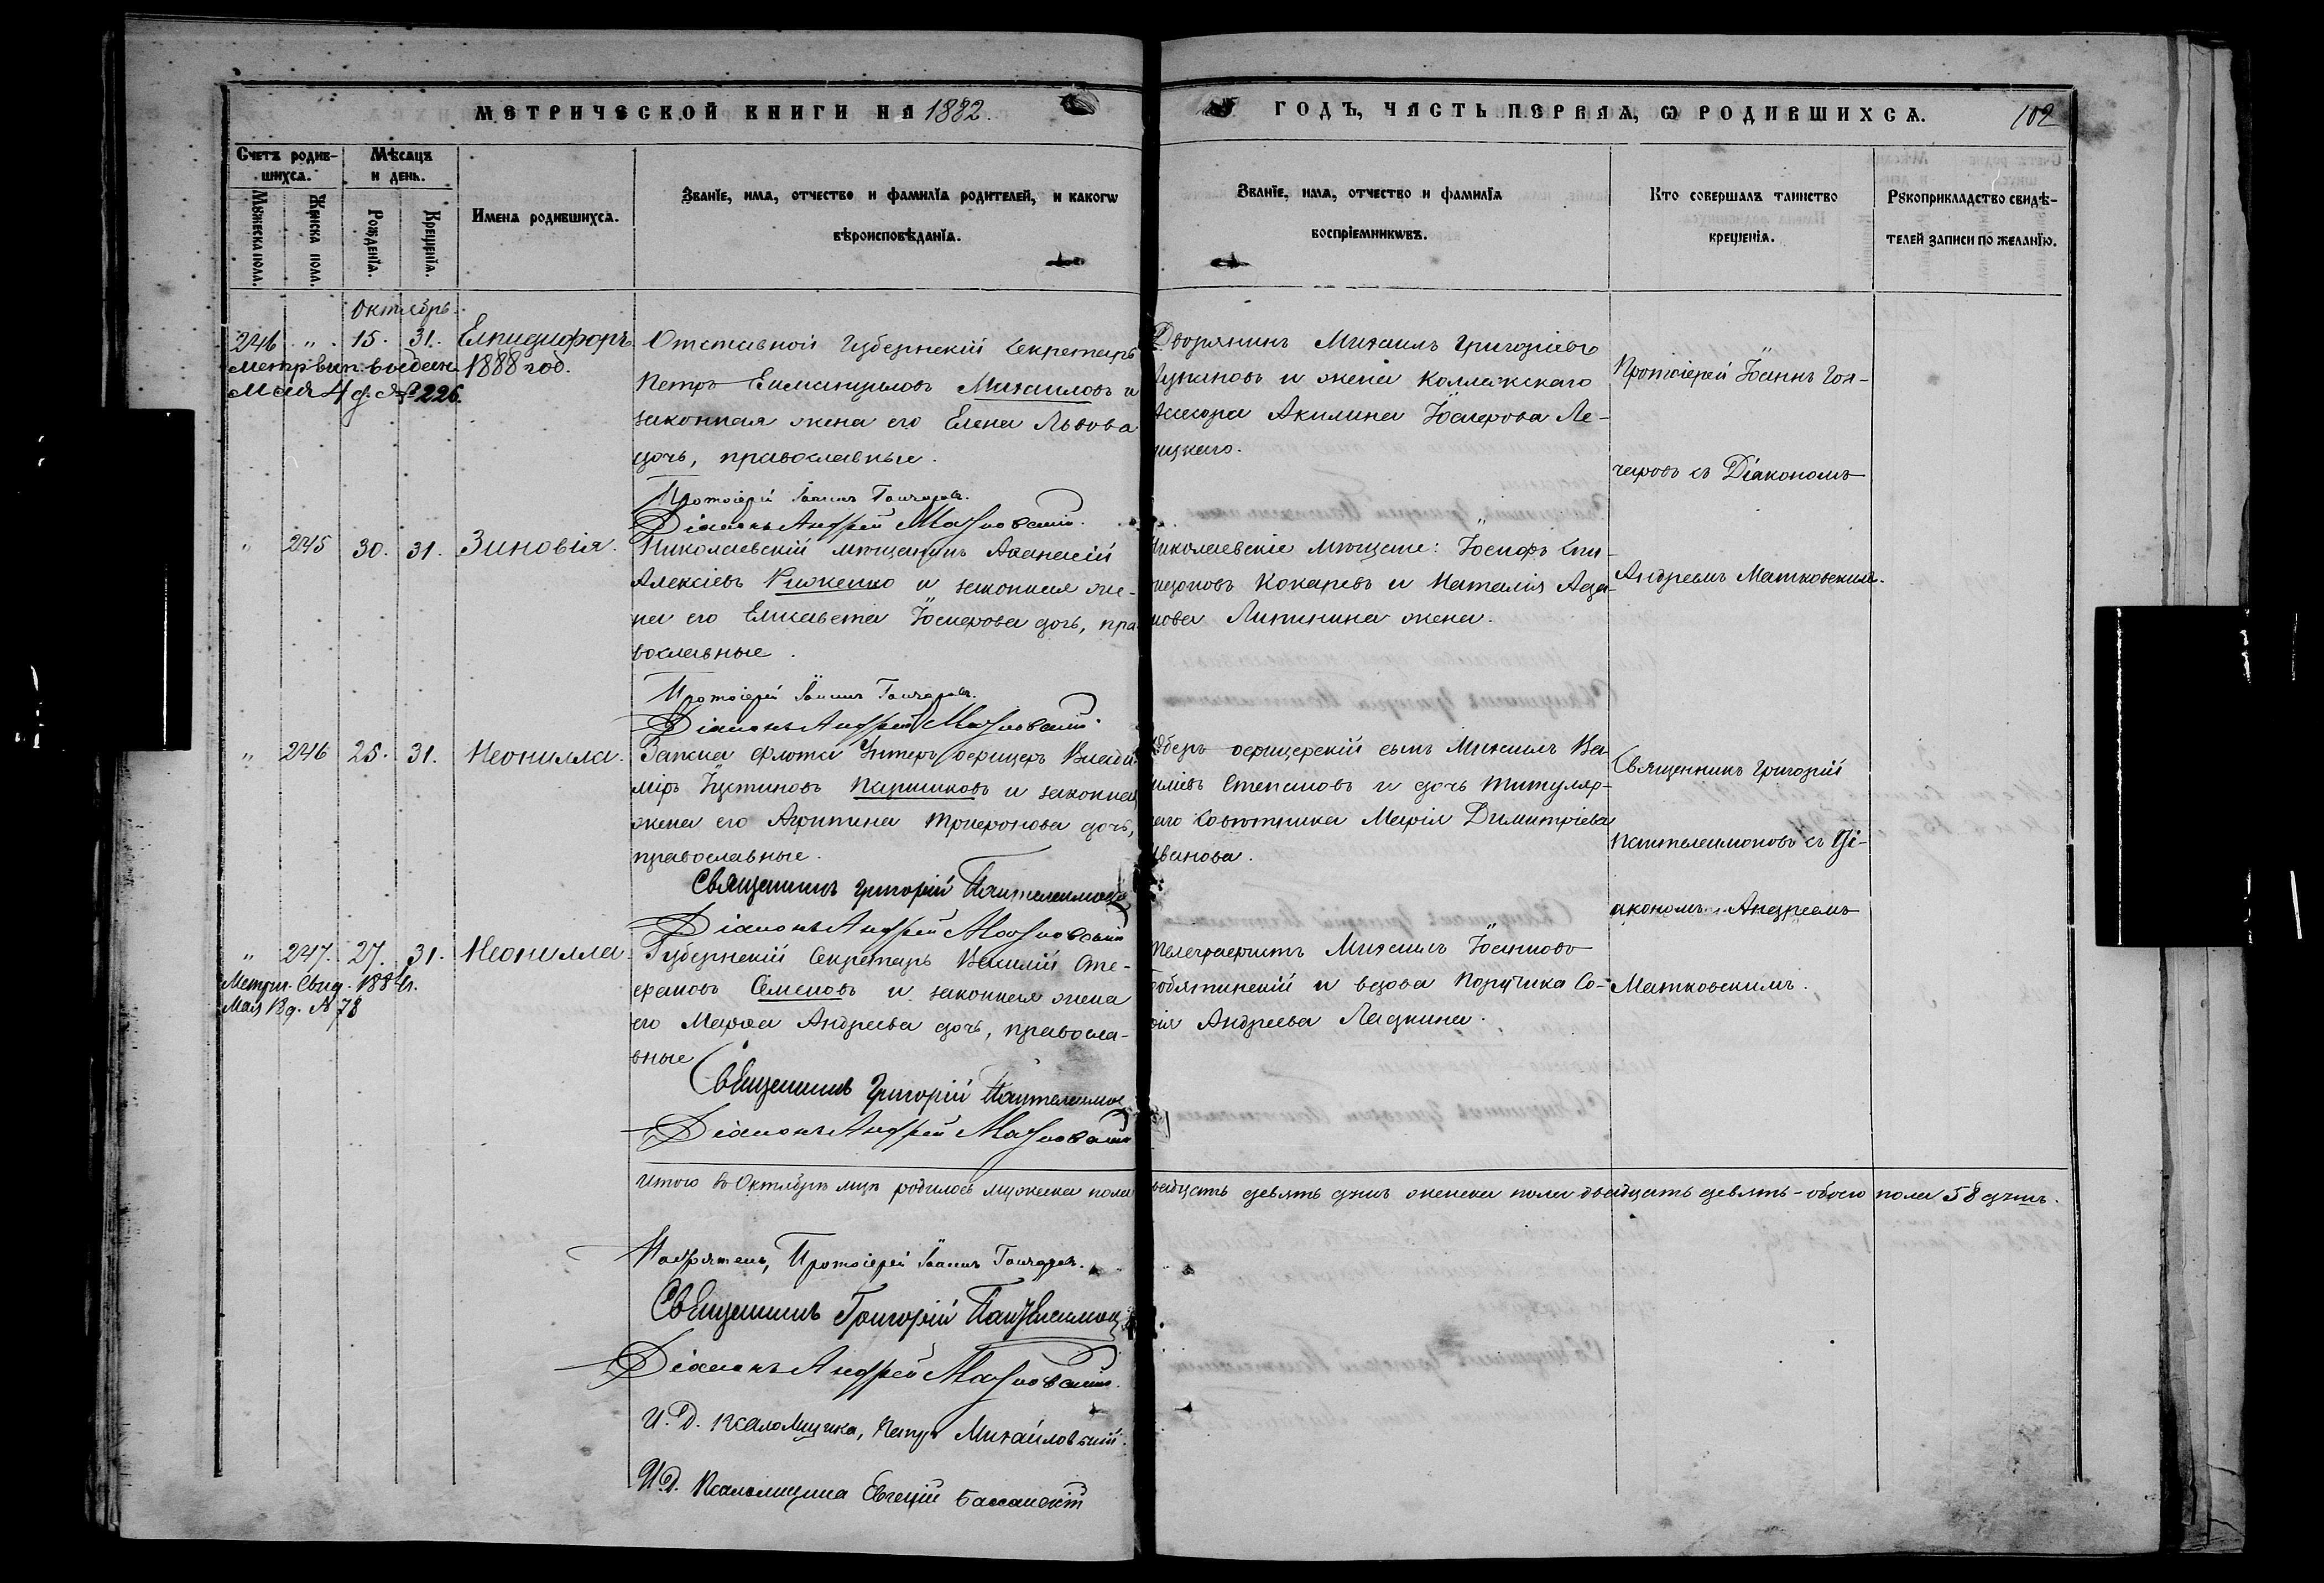 МЕТРИЧЕСКОЙ КНИГИ НА 1882.
ГОДЪ, ЧАСТЬ ПЕРВАѦ, Ѡ РОДИВШИХСѦ.
102
Счетъ родив-
шихсѧ.
Мѣсѧцъ
и день.
Мꙋжеска пола.
Женска пола.
Рожденїѧ.
Крещенїѧ.
Имена родившихсѧ.
Званїе, имѧ, отчество и фамилїѧ родителей, и какогѡ
вѣроисповѣданїѧ.
Званїе, имѧ, отчество и фамилїѧ
воспрїемникѡвъ.
Кто совершалъ таинство
крещенїѧ.
Рꙋкоприкладство свидѣ-
телей записи по желанїю.
Октябрь.
246 " 15. 31. Елпидифоръ
Метр. вып. выдан. 1888 год.
Мая 4 д. № 226.
Отставной Губернскій Секретарь
Петръ Еммануиловъ Михаиловъ и
законная жена его Елена Львова
дочь, православные.
Протоіерей Іоаннъ Гончаровъ.
Діаконъ Андрей Матковскій.
Дворянинъ Михаилъ Григоріевъ
и жена Коллежскаго
Акилина Іосифова Ле-
Протоіерей Іоаннъ Гон-
чаровъ съ Діакономъ
Андреемъ Матковскимъ.
" 245 30. 31. Зиновія.
Николаевскій мѣщанинъ Аѳанасій
Алексіевъ Рыженко и законная же-
на его Елисавета Іосифова дочь, пра-
вославные.
Протоіерей Іоаннъ Гончаровъ.
Діаконъ Андрей Матковскій.
Николаевскіе мѣщане: Іосифъ Спи-
ридоновъ Кокаревъ и Наталія Ада-
мова Литвина жена.
" 246 25. 31. Неонилла.
Запаса флота Унтеръ офицеръ Влади-
міръ Іустиновъ Паршиковъ и законная
жена его Агрипина Трифонова дочь,
православные.
Священникъ Григорій Пантелеимоновъ
Діаконъ Андрей Матковскій
Оберъ-офицерскій сынъ Михаилъ Ва-
силіевъ Степановъ и дочь титуляр-
наго совѣтника Марія Димитріева
Иванова.
Священникъ Григорій
Пантелеимоновъ съ Ді-
акономъ Андреемъ
Матковскимъ.
" 247. 27. 31. Неонилла
Метри. Свид. 1884 г.
Мая 18 д. № 78
Губернскій Секретарь Василій Сте-
фановъ Семеновъ и законная жена
его Марѳа Андреева дочь, правосла-
вные
Священникъ Григорій Пантелеимоновъ
Діаконъ Андрей Матковскій
Телеграфистъ Михаилъ Іоанновъ
и вдова Поручика Со-
фія Андреева Ладкина.
Итого въ Октябрѣ мцѣ родилось мужеска пола двадцать девять душъ женска пола двадцать девять - обоего пола 58 душъ.
Настоятель, Протоіерей Іоаннъ Гончаровъ.
Священникъ Григорій Пантелеимоновъ
Діаконъ Андрей Матковскій.
И. Д. Псаломщика, Петръ Михайловскій.
И. Д. Псаломщика Евгеній